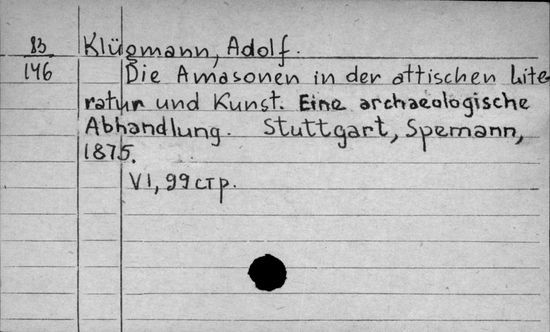 83 Klügmann, Adolf.
146 Die Amasonen in der attischen Lite
ratur und Kunst. Eine archaeologische
Abhandlung. Stuttgart, Spemann,
1875.
VI, 99 стр.